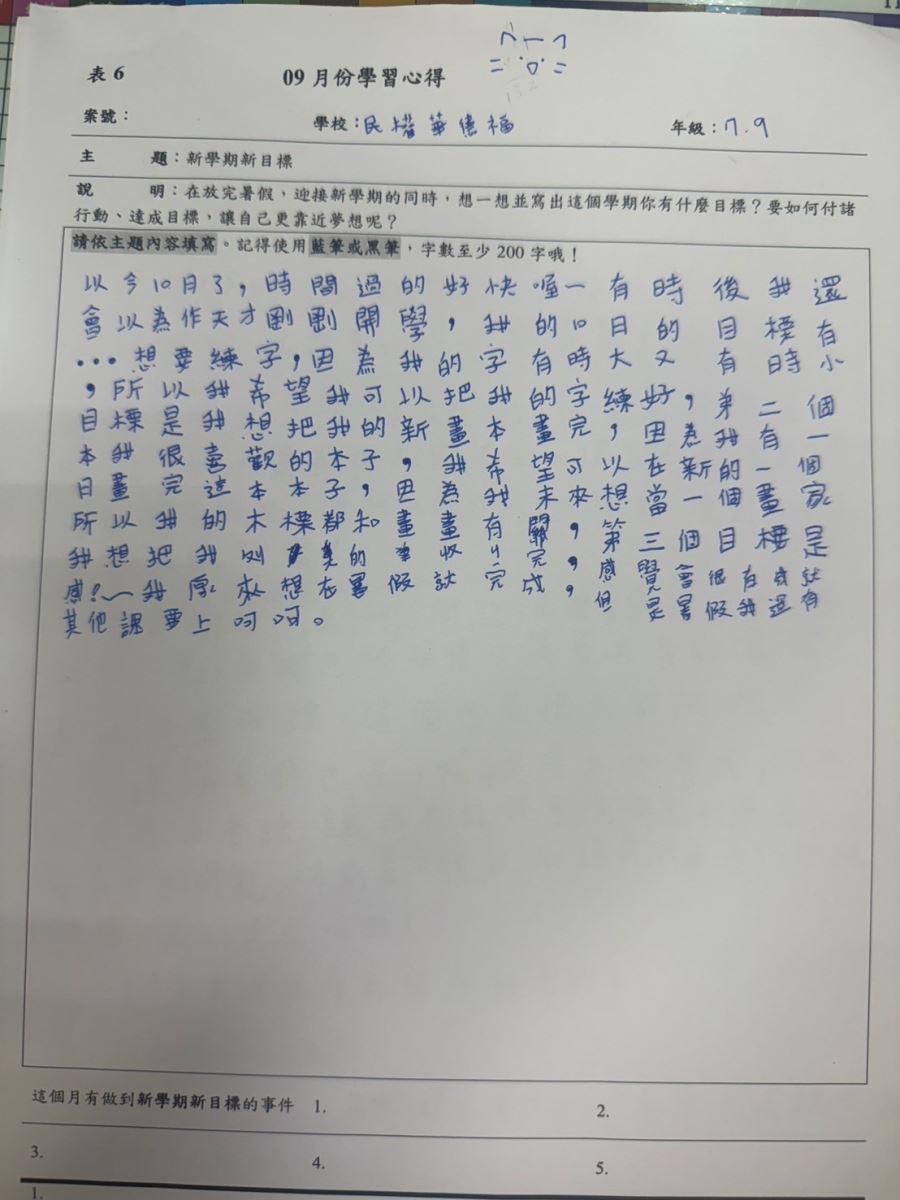 表 6
09 月份學習心得
案號：
學校：民權華德福
年級：7.9
主　　題：新學期新目標
說　　明：在放完暑假，迎接新學期的同時，想一想並寫出這個學期你有什麼目標？要如何付諸
行動、達成目標，讓自己更靠近夢想呢？
請依主題內容填寫。記得使用藍筆或黑筆，字數至少 200 字哦！
以今10月了，時間過的好快喔一有時後我還
會以為作天才剛剛開學，我的10日的目標有
...想要練字，因為我的字有時大又有時小
，所以我希望我可以把我的字練好，弟二個
目標是我想把我的新畫本畫完，因為我有一
本我很喜歡的本子，我希望可以在新的一個
日畫完這本本子，因為我未來想當一個畫家
所以我的木標都和畫畫有關，第三個目標是
我想把我的完，感覺會很有成就
感!~我原來想在暑假就完成，但是暑假我還有
其他課要上呵呵。
這個月有做到新學期新目標的事件 1.
2.
3.
4.
5.
1.